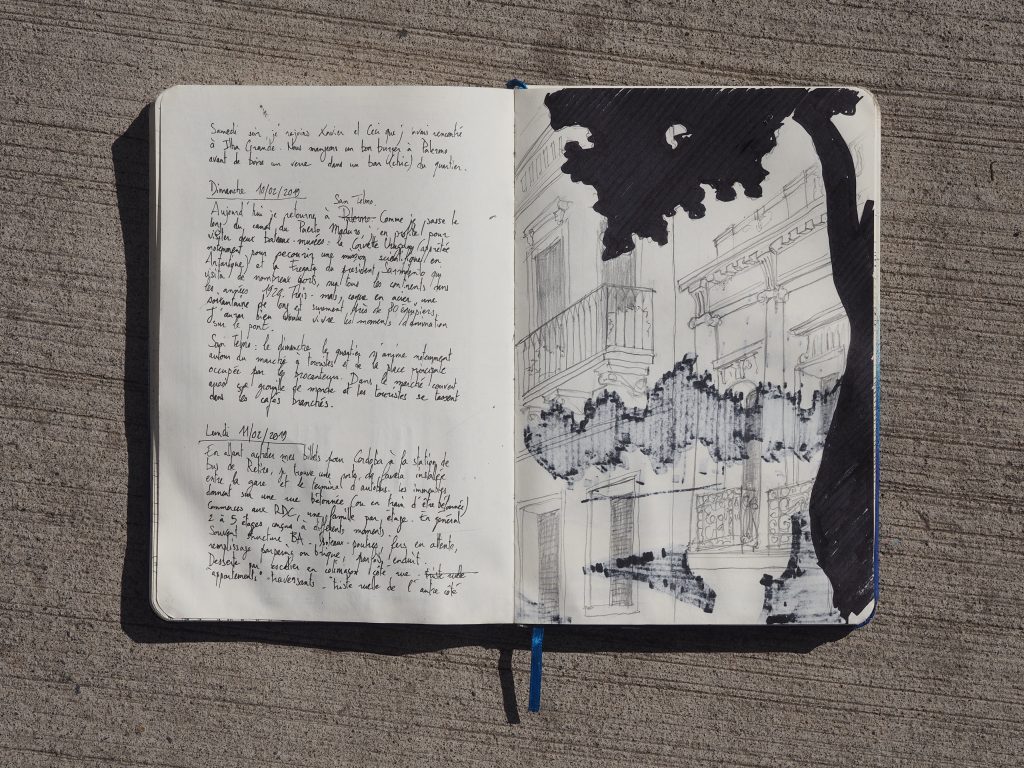 Samedi soir, je rejoins Xavier et Ceci que j'avais rencontré
à Ilha Grande. Nous mangeons un bon burger à Palermo
avant de boire un verre dans un bar (chic) du quartier.
Dimanche 10/02/2019
San Telmo.
Aujourd'hui je retourne à Palermo. Comme je passe le
long du canal du Puerto Madero, j'en profite pour
visiter deux bateaux-musées : la Corvette Uruguay (affrétée
notamment pour secourir une mission scientifique en
Antarctique) et la Fregata du président Sarmiento qui
visita de nombreux ports, sur tous les continents dans
les années 1924. Trois-mâts, coque en acier, une
soixantaine de long et surement près de 80 équipiers.
J'aurais bien voulu vivre les moments d'animation
sur le pont.
San Telmo : le dimanche le quartier s'anime notamment
autour du marché à touristes et de la place principale
occupée par les brocanteurs. Dans le marché couvert
aussi ça grouille de monde et les touristes se tassent
dans les cafés branchés.
Lundi 11/02/2019
En allant acheter mes billets pour Cordoba à la station de
bus de Retiro, je trouve une sorte de favela installée
entre la gare et le terminal d'autobus. Les immeubles
donnent sur une rue bétonnée (ou en train d'être bétonnée)
commerces aux RDC, une famille par étage. En général
2 à 5 étages, conçus à différents moments.
Souvent structure BA : poteaux-poutres, fers en attente,
remplissage parpaing ou brique, parfois enduit.
Desserte par escalier en colimaçon côté rue. triste ruelle
"appartements" traversants - triste ruelle de l'autre côté